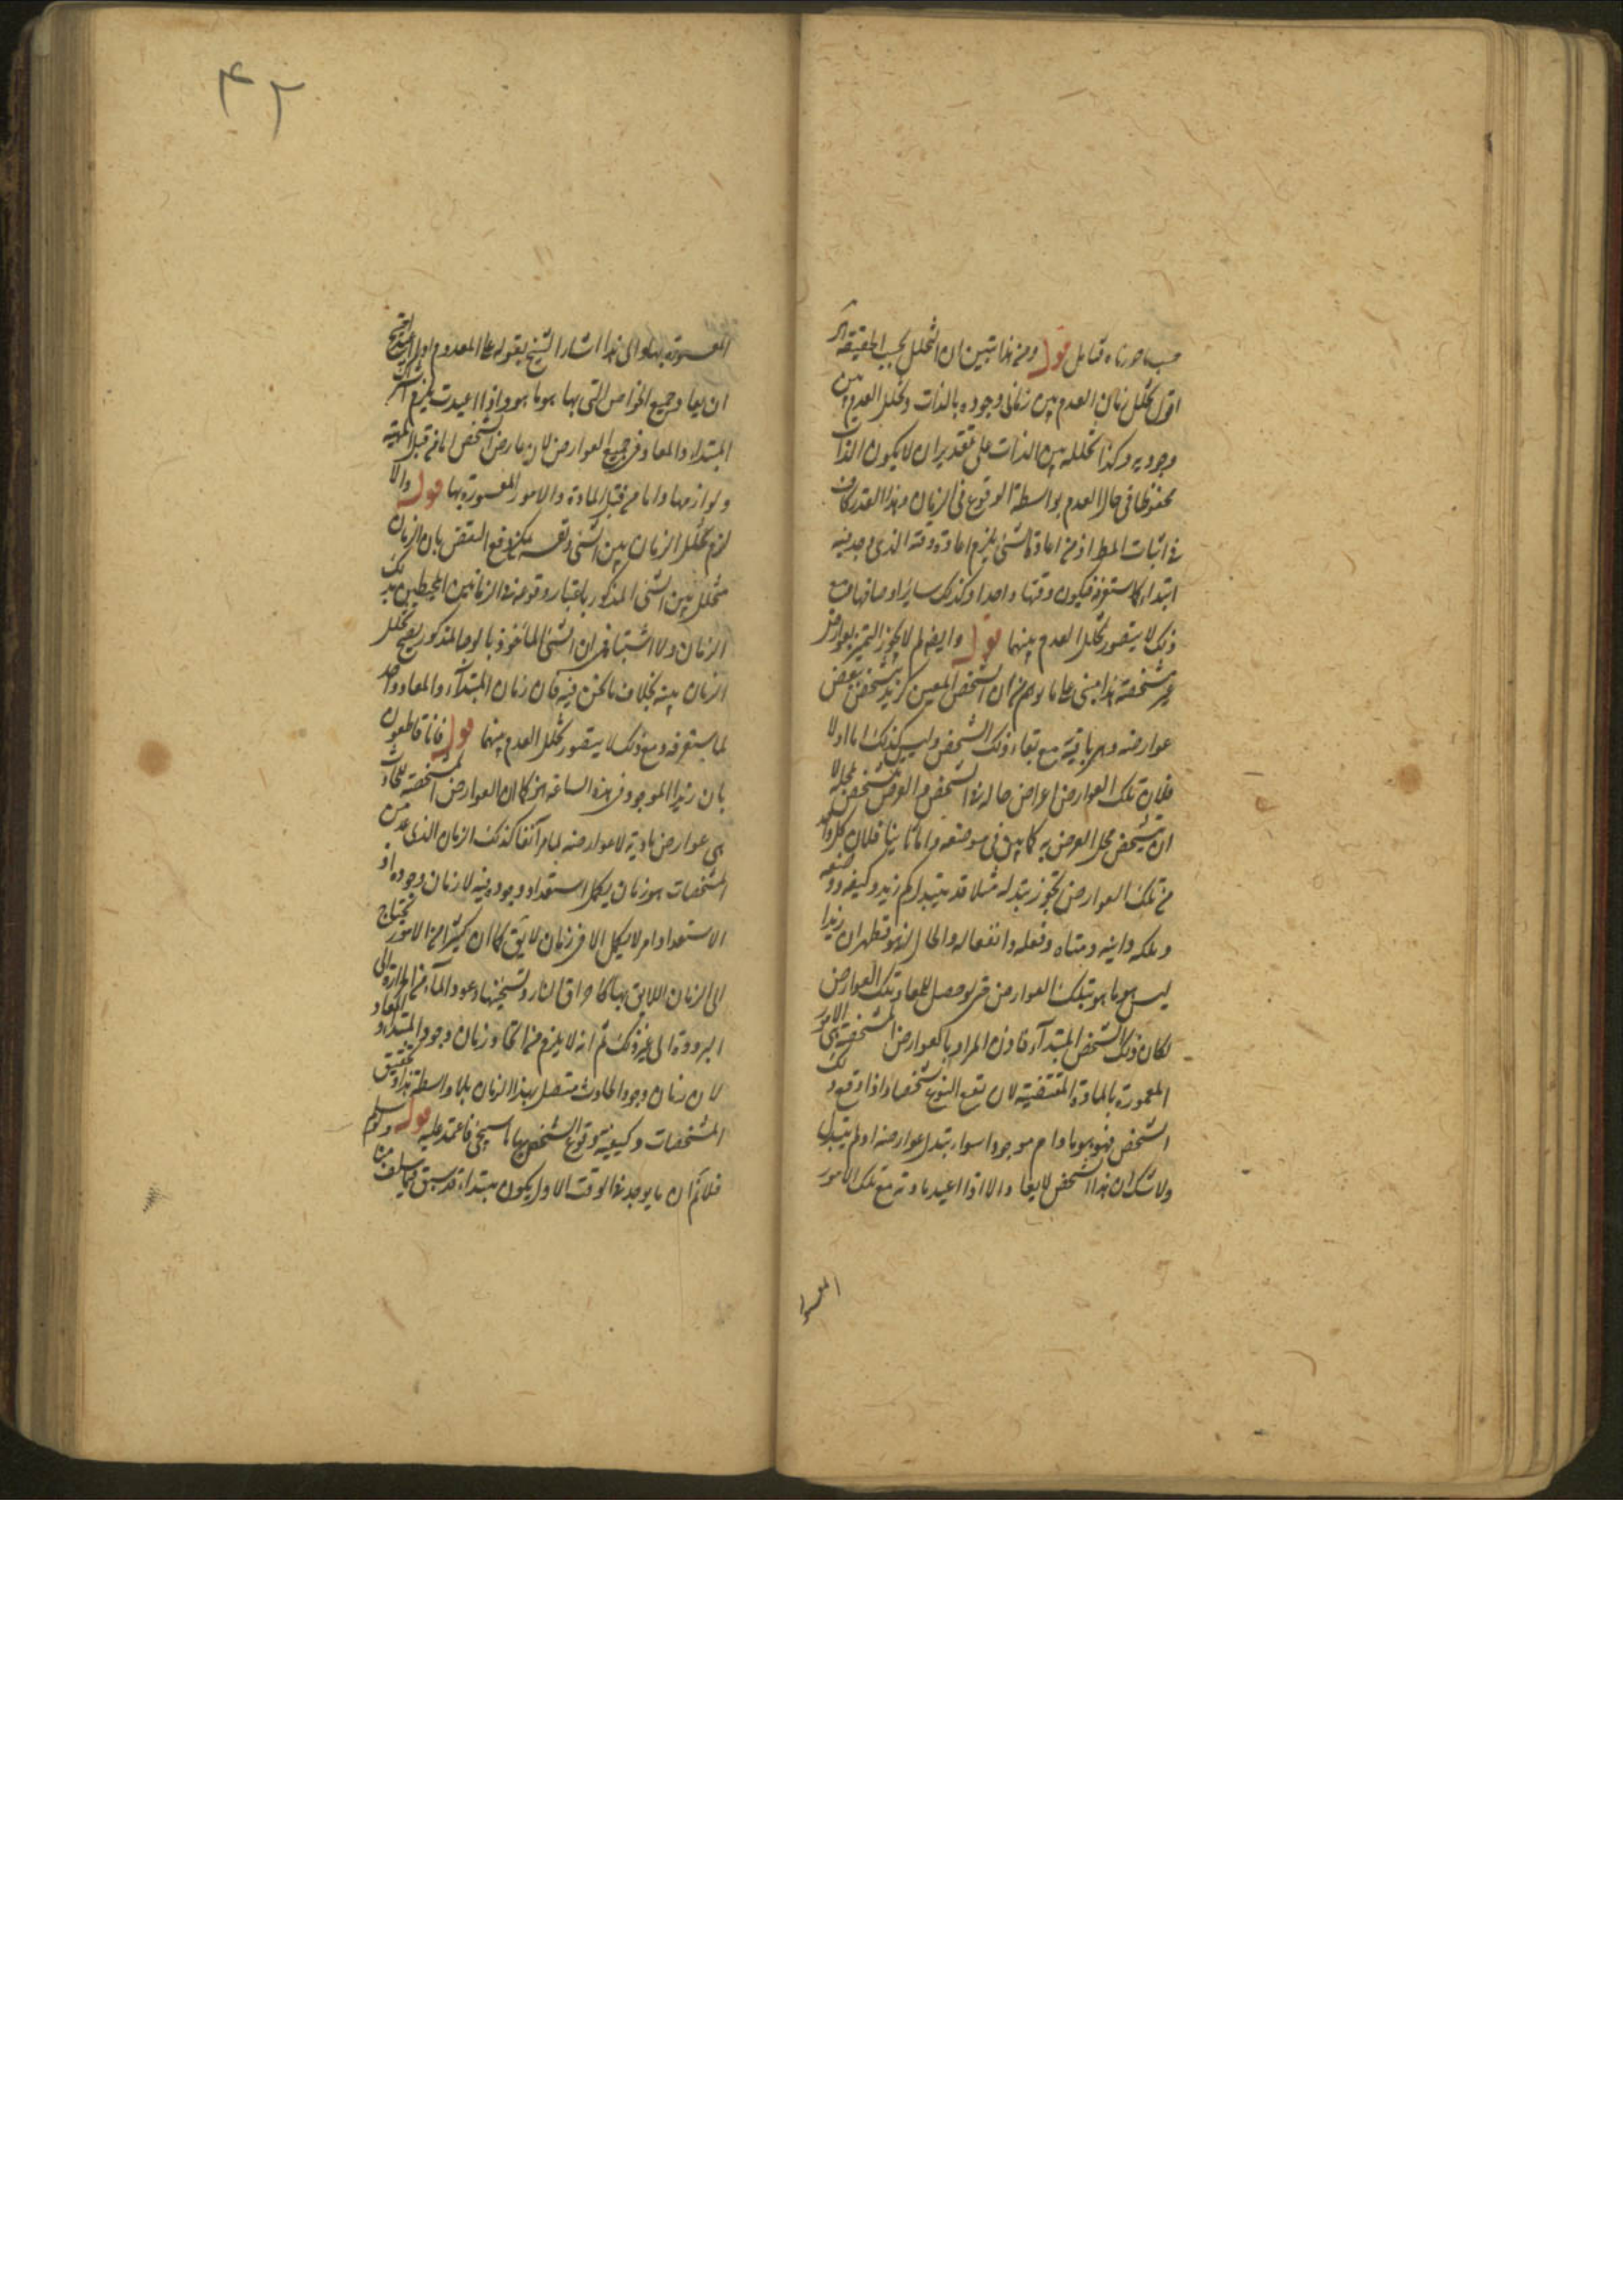 حسب ما صورناه قتامل قوله ومن هذا تبين ان التخلل بحسب الحقيقة آه
اقول تخلل زمان العدم بين زماني وجوده بالذات وتخلل العدم بين
وجوديه وكذا تخلله بين الذات على تقدير ان لا يكون الذات
محفوظا في حال العدم بواسطة الوقوع في الزمان وهذا القدر كاف
في اثبات المط اذ من اعادة الشئ يلزم اعادة وقته الذي وجد فيه
ابتداء كما ستعرفه فيكون وقتهما واحدا وكذلك ساير اوصافهما ومع
ذلك لا يتصور تخلل العدم بينهما قوله وايضا لم لا يجوز التميز بعوارض
غير مشخصة هذا مبني على ما توهم من ان الشخص المعين كزيد تشخص ببعض
عوارضه وهي باقية مع بقاء ذلك الشخص وليس كذلك اما اولا
فلان تلك العوارض اعراض حالة في هذا الشخص والعرض تشخص بمحله لا
ان تشخص محل العرض به كما بين في موضعه واما ثانيا فلان كل واحد
من تلك العوارض يجوز تبدله مثلا قد يتبدل كم زيد وكيفه ووضعه
وملكه واينه ومتاه وفعله وانفعاله والحال انه هو فظهر ان زيدا
ليس هو ما هو بتلك العوارض حتى لو حصل للمعاد تلك العوارض
لكان ذلك الشخص المبتدأ فاذن المراد بالعوارض المشخصة هي الامور
المعمورة بالمادة المقتضية لان يقع النوع شخصا واذا وقع ذلك
الشخص فهو هو ما دام موجودا سواء تبدل عوارضه او لم يتبدل
ولا شك ان هذا الشخص لا يعاد الا اذا اعيد مادته مع تلك الامور
المعمورة بها والى هذا اشار الشيخ بقوله على المعدوم اذا اعيد احتيج
ان يعاد جميع الخواص التي بها هو ما هو واذا اعيدت يلزم اشتراك
المبتداء والمعاد في جميع العوارض لان عارض الشخص اما من قبل الماهية
ولوازمها واما من قبل المادة والامور المعمورة بها قوله والا
لزم تخلل الزمان بين الشئ ونفسه يمكن دفع النقض بان الزمان
متخلل بين الشئ المذكور باعتبار وقوعه في الزمانين المحيطين بذلك
الزمان ولا اشتباه في ان الشئ المأخوذ بالوجه المذكور يصح تخلل
الزمان بينه بخلاف ما نحن فيه فان زمان المبتدأ والمعاد واحد
لما ستعرفه ومع ذلك لا يتصور تخلل العدم بينهما قوله فانا قاطعون
بان زيدا الموجود في هذه الساعة كما ان العوارض المشخصة للحادث
هي عوارض مادية لا عوارضه لما مر آنفا كذلك الزمان الذي عد من
المشخصات هو زمان يكمل استعداد وجوده فيه لا زمان وجوده اذ
الاستعداد امر لا يكمل الا في زمان لايق كما ان كثيرا من الامور يحتاج
الى الزمان اللايق بها كاحراق النار وتسخينها وعود الماء من الحرارة الى
البرودة الى غير ذلك ثم انه لا يلزم من هذا اتحاد زمان وجود المبتداء والمعاد
لان زمان وجود الحادث متصل بهذا الزمان بلا واسطة هذا وتحقيق
المشخصات وكيفية وقوع الشخص بها ما سيجئ فاعتمد عليه قوله ولو سلم
فلا نم ان ما يوجد في الوقت الاول يكون مبتداء قد سبق فيما سلف من
المعمورة
٤٢